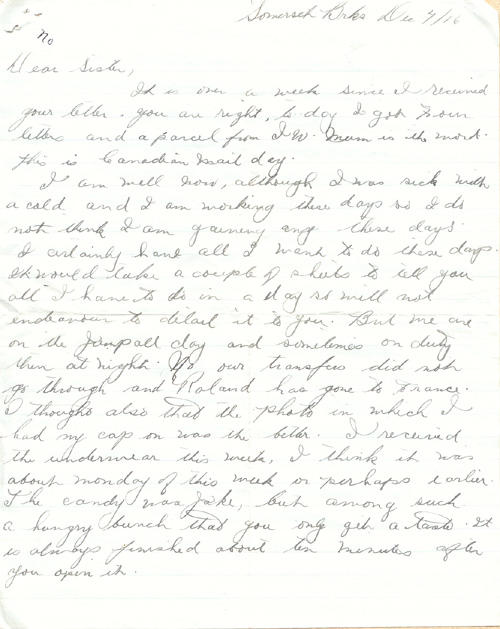 Somerset Brks Dec 7/16
No
Dear Sister,
It is over a week since I received
your letter. you are right, to day I got four
letters and a parcel from I.W. Mum is the word.
This is Canadian mail day.
I am well now, although I was sick with
a cold and I am working these days so I do
not think I am gaining any these days.
I certainly have all I want to do these days.
It would take a couple of sheets to tell you
all I have to do in a day so will not
endeavour to detail it to you. But we are
on the jump all day and sometimes on duty
then at night. No our transfer did not
go through and Roland has gone to France.
I thought also that the photo in which I
had my cap on was the better. I received
the underwear this week, I think it was
about monday of this week or perhaps earlier.
The candy was Jake, but among such
a hungry bunch that you only get a taste. It
is always finished about ten minutes after
you open it.